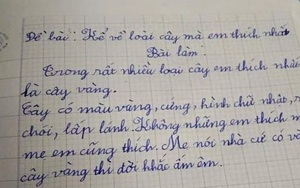 Đề bài: Kể về loài cây mà em thích nhất
Bài làm.
Trong rất nhiều loại cây em thích nhất
là cây vàng.
Cây có màu vàng, cứng, hình chữ nhật,
chói, lấp lánh. Không những em thích
mẹ em cũng thích. Mẹ nói nhà cứ có
cây vàng thì đời khắc ấm êm.